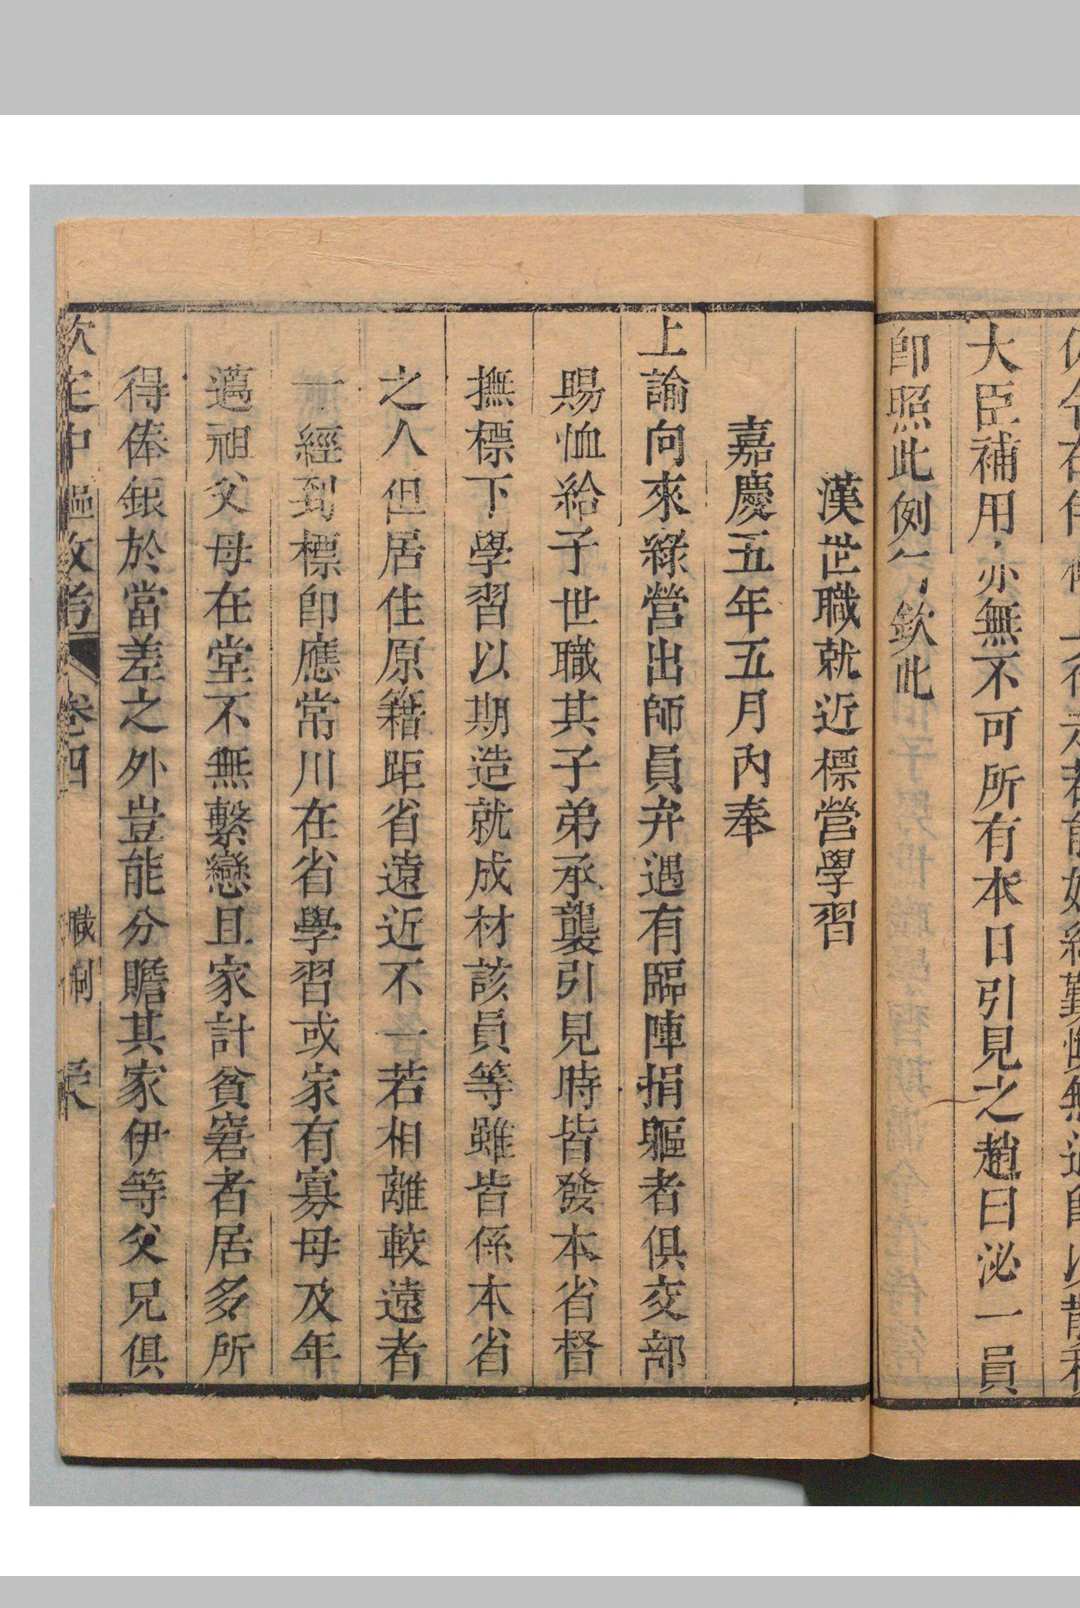 大臣補用亦無不可所有本日引見之趙曰泌一員
卽照此例行欽此
漢世職就近標營學習
嘉慶五年五月內奉
上諭向來綠營出師員弁遇有臨陣捐軀者俱交部
賜恤給子世職其子弟承襲引見時皆發本省督
撫標下學習以期造就成材該員等雖皆係本省
之人但居住原籍距省遠近不一若相離較遠者
一經到標卽應常川在省學習或家有寡母及年
邁祖父母在堂不無繫戀且家計貧窘者居多所
得俸銀於當差之外豈能分贍其家伊等父兄俱
欽定中樞政考 卷四 職制